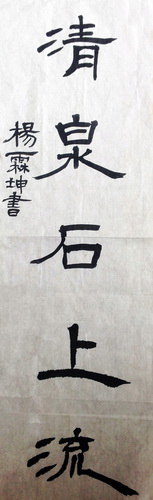 清泉石上流
楊霖坤書